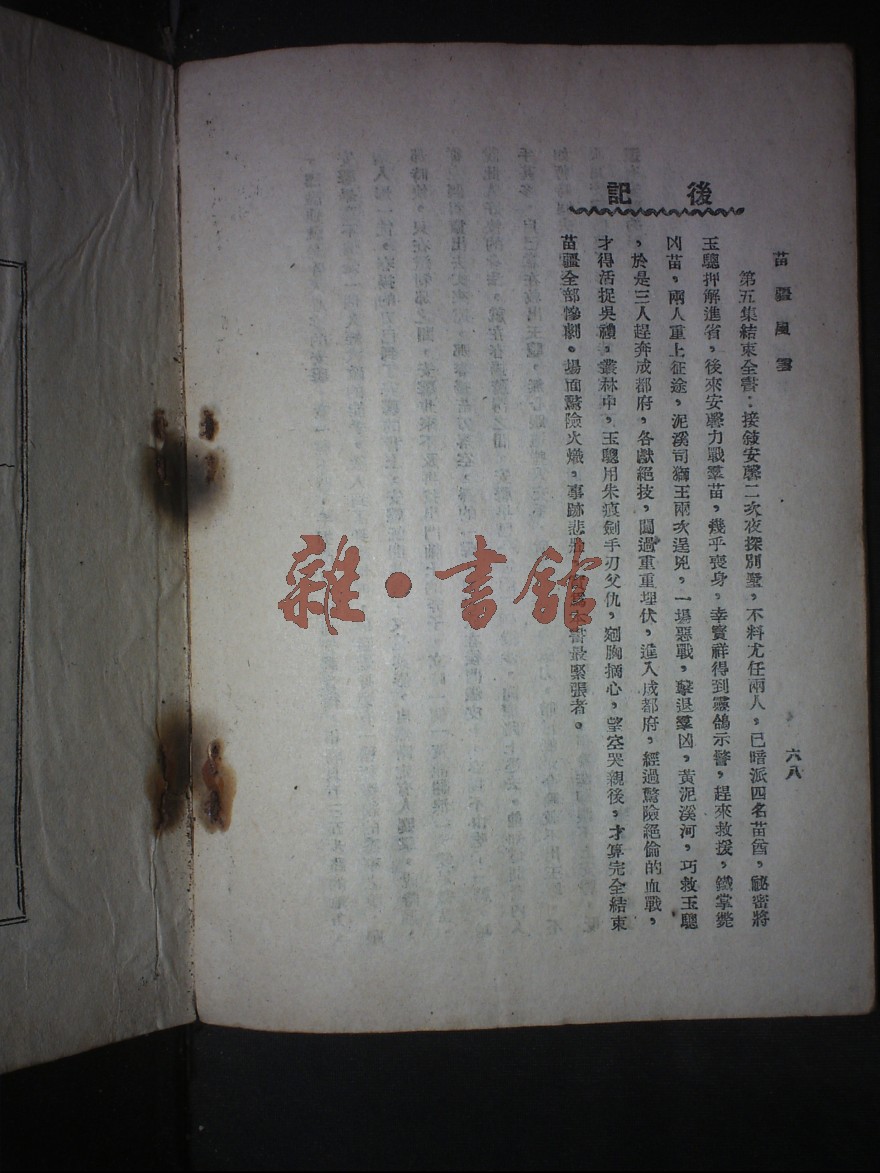 苗疆風雲
六八
後記
第五集結束全書：接敍安馨二次夜探別墅，不料尤任兩人，已暗派四名苗酋，祕密將
玉驄押解進省，後來安馨力戰羣苗，幾乎喪身，幸寶祥得到靈鴿示警，趕來救援，鐵掌斃
凶苗，兩人重上征途，泥溪司獅王兩次逞兇，一場惡戰，擊退羣凶，黃泥溪河，巧救玉驄
，於是三人趕奔成都府，各獻絕技，闖過重重埋伏，進入成都府，經過驚險絕倫的血戰，
才得活捉吳禮，叢林中，玉驄用朱痕劍手刃父仇，剜胸摘心，望空哭親後，才算完全結束
苗疆全部慘劇。塲面驚險火熾，事跡悲 書最緊張者。
雜·書館